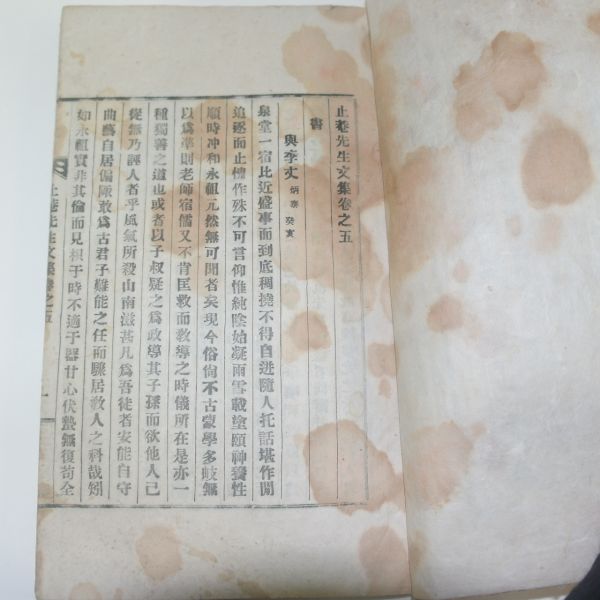 止菴先生文集卷之五
書
與李丈 炳泰 癸亥
泉堂一宿比近盛事而到底稠撓不得自迸隨人托話堪作閒
追逐而止悵作殊不可言仰惟純陰始凝雨雪載塗頤神養性
順時冲和永祖兀然無可聞者矣現今俗尙不古蒙學多岐無
以爲準則老師宿儒又不肯匡救而敎導之時儀所在是亦一
種獨善之道也或者以子叔疑之爲政導其子孫而欲他人己
從無乃誣人者乎風氣所殺山南滋甚凡爲吾徒者安能自守
曲藝自居偏陬敢爲古君子難能之任而驟居敎人之科哉矧
如永祖實非其倫而見棄于時不適于器甘心伏蟄無復苟全
止菴先生文集卷之五
一